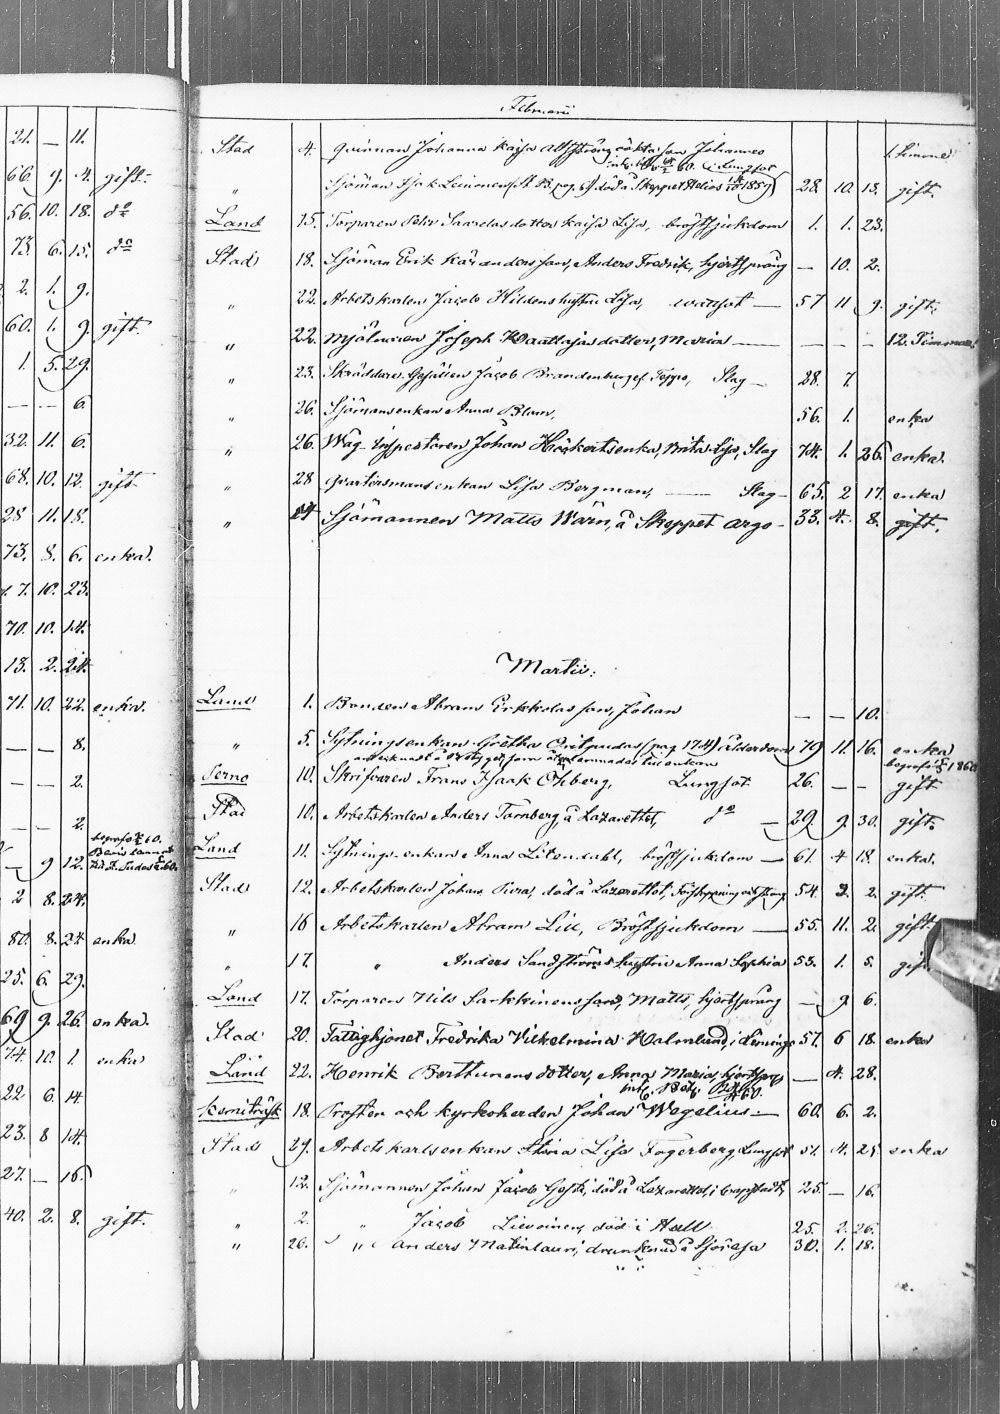 21. — 11.
66. 9. 4. gift.
56. 10. 18. do
73. 6. 15. do
2. 1. 9.
60. 1. 9. gift.
1. 5. 29.
— — 6.
32. 11. 6.
68. 10. 12. gift.
28 11. 18.
73. 8. 6. enka.
7. 10. 23.
70. 10. 14.
13. 2. 24.
71. 10. 22. enka.
— — 8.
— — 2.
— — 2.
— 9 12.
2 8. 24.
80. 8. 24 enka
25. 6. 29.
69 9. 26. enka.
74. 10. 1. enka
22 6. 14
23. 8 14.
27. — 16.
40. 2. 8. gift.
Februarii
Stad 4. Quinnan Johanna Kaisa son Johannes 1. Timme
" Sjöman Isak Leinonen död å Skeppet Helios 1859 28. 10. 13. gift.
Land 15. Torparen Pehr Saarelas dotter Kaisa Lisa, bröstsjukdom 1. 1. 23.
Stad 18. Sjöman Erik Käranders son, Anders Fredrik, hjertsprång — 10. 2.
" 22. Arbetskarlen Jacob Hildens hustru Lisa, wattsot — 57 11 9. gift.
" 22. Mjölnaren Joseph Kaattajas dotter, Maria — — — — 12. Timmar.
" 23. Skräddare Gesällen Jacob Brandenburg, Slag — 28. 7
" 26. Sjömansenkan Anna Blom, 56. 1. enka
" 26. Wåg-Inspectoren Johan Höckerts enka, Brita Lisa, Slag 74. 1. 26. enka.
" 28 Qvartersmansenkan Lisa Bergman, — Slag — 65. 2 17. enka
" 14 Sjömannen Matts Wärn, å Skeppet Argo — 33. 4. 8. gift.
Martii.
Land 1. Bonden Abram Erkkolas son, Johan — — 10.
" 5. Sytningsenkan Gretha (pag 174) ålderdom 79 11. 16. enka
begrafs 1860
10. Skrifvaren Frans Isaak Öhberg, Lungsot 26. — — gift
Stad 10. Arbetskarlen Anders Tornberg, å Lazarettet, do — 29 9. 30. gift.
Land 11. Sytnings-enkan Anna Litendahl, bröstsjukdom — 61. 4 18. enka.
Stad 12. Arbetskarlen Johan död å Lazarettet, 54. 3. 2. gift.
" 16 Arbetskarlen Abram Lill, Bröstsjukdom — 55. 11. 2. gift.
" 17. " Anders Sandströms hustru Anna Sophia 53. 1. 5. gift
Land 17. Torparen Nils Sarkkinens son, Matts, hjertsprång — 9 6.
Stad 20. Fattighjonet Fredrika Vilhelmina Holmlund, i Liminge 57. 6 18. enka
Land 22. Henrik Berttunens dotter, Anna Maria, hjertspr — 4. 28.
Kemiträsk 18. Prosten och kyrkoherden Johan Wegelius — 60. 6. 2.
Stad 29. Arbetskarlsenkan Lisa Fogerberg, Lungsot 51. 4. 25 enka
" 12. Sjömannen Johan Jacob död å Lazarettet, i Capstadt, 25. — 16.
" 2. " Jacob Lievoinen, död i Hull 25. 2. 26.
" 26. " Anders Matinlauri, drunknad å Sjöresa 30. 1. 18.